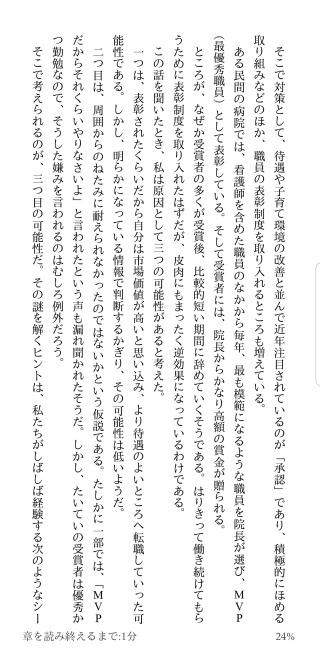 そこで対策として、待遇や子育て環境の改善と並んで近年注目されているのが「承認」であり、積極的にほめる
取り組みなどのほか、職員の表彰制度を取り入れるところも増えている。
ある民間の病院では、看護師を含めた職員のなかから毎年、最も模範になるような職員を院長が選び、MVP
（最優秀職員）として表彰している。そして受賞者には、院長からかなり高額の賞金が贈られる。
ところが、なぜか受賞者の多くが受賞後、比較的短い期間に辞めていくそうである。はりきって働き続けてもら
うために表彰制度を取り入れたはずだが、皮肉にもまったく逆効果になっているわけである。
この話を聞いたとき、私は原因として三つの可能性があると考えた。
一つは、表彰されたくらいだから自分は市場価値が高いと思い込み、より待遇のよいところへ転職していった可
能性である。しかし、明らかになっている情報で判断するかぎり、その可能性は低いようだ。
二つ目は、周囲からのねたみに耐えられなかったのではないかという仮説である。たしかに一部では、「MVP
だからそれくらいやりなさいよ」と言われたという声も漏れ聞かれたそうだ。しかし、たいていの受賞者は優秀か
つ勤勉なので、そうした嫌みを言われるのはむしろ例外だろう。
そこで考えられるのが、三つ目の可能性だ。その謎を解くヒントは、私たちがしばしば経験する次のようなシー
章を読み終えるまで:1分
24%